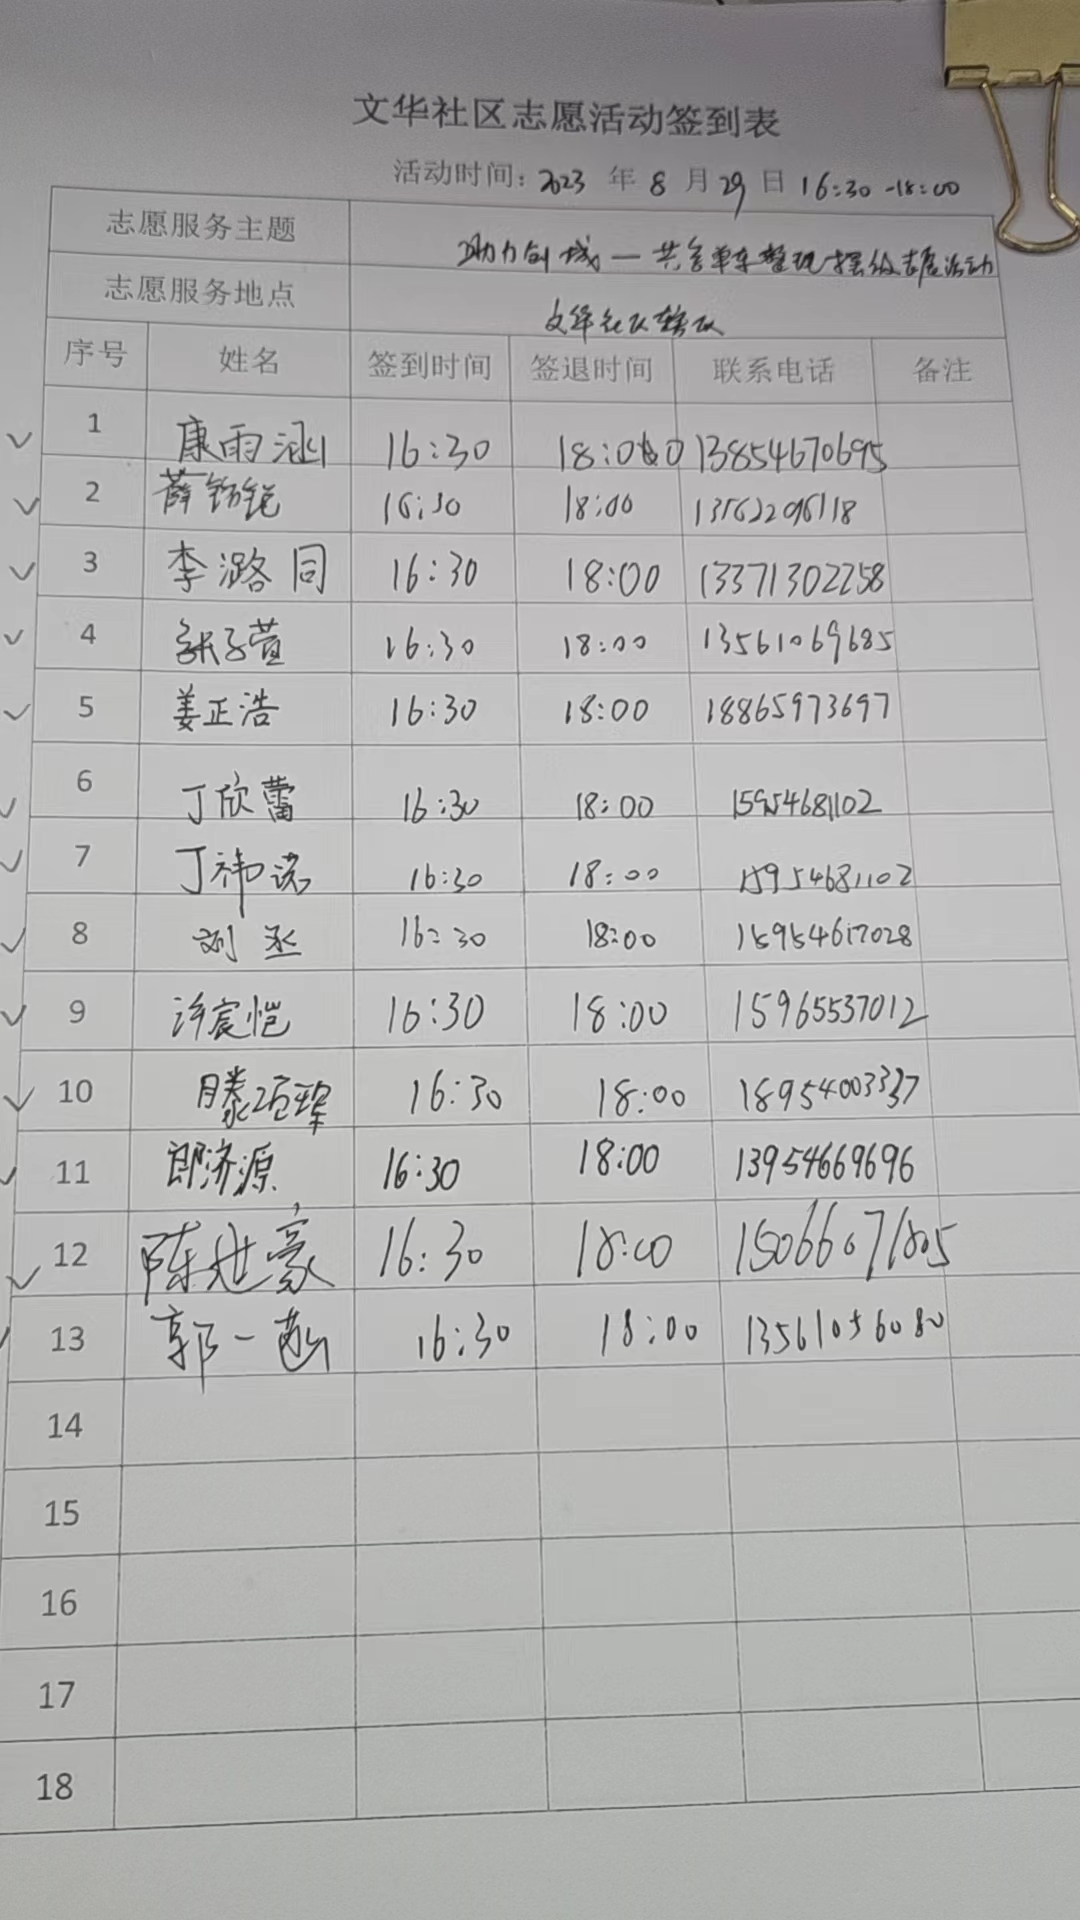 文华社区志愿活动签到表
活动时间: 2023 年 8 月 29 日 16:30 -18:00
志愿服务主题 助力创城一共享单车整理摆放志愿活动
志愿服务地点 文华社区辖区
序号 姓名 签到时间 签退时间 联系电话 备注
1 康雨涵 16:30 18:00 13854670695
2 薛钧铠 16:30 18:00 13562296118
3 李潞同 16:30 18:00 13371302258
4 张子萱 16:30 18:00 13561069685
5 姜正浩 16:30 18:00 18865973697
6 丁欣蕾 16:30 18:00 15954681102
7 丁祎诺 16:30 18:00 15954681102
8 刘丞 16:30 18:00 15954617028
9 许宸恺 16:30 18:00 15965537012
10 滕 16:30 18:00 18954003337
11 郎济源 16:30 18:00 13954669696
12 陈世豪 16:30 18:00 15066071805
13 郭一菡 16:30 18:00 13561056080
14
15
16
17
18